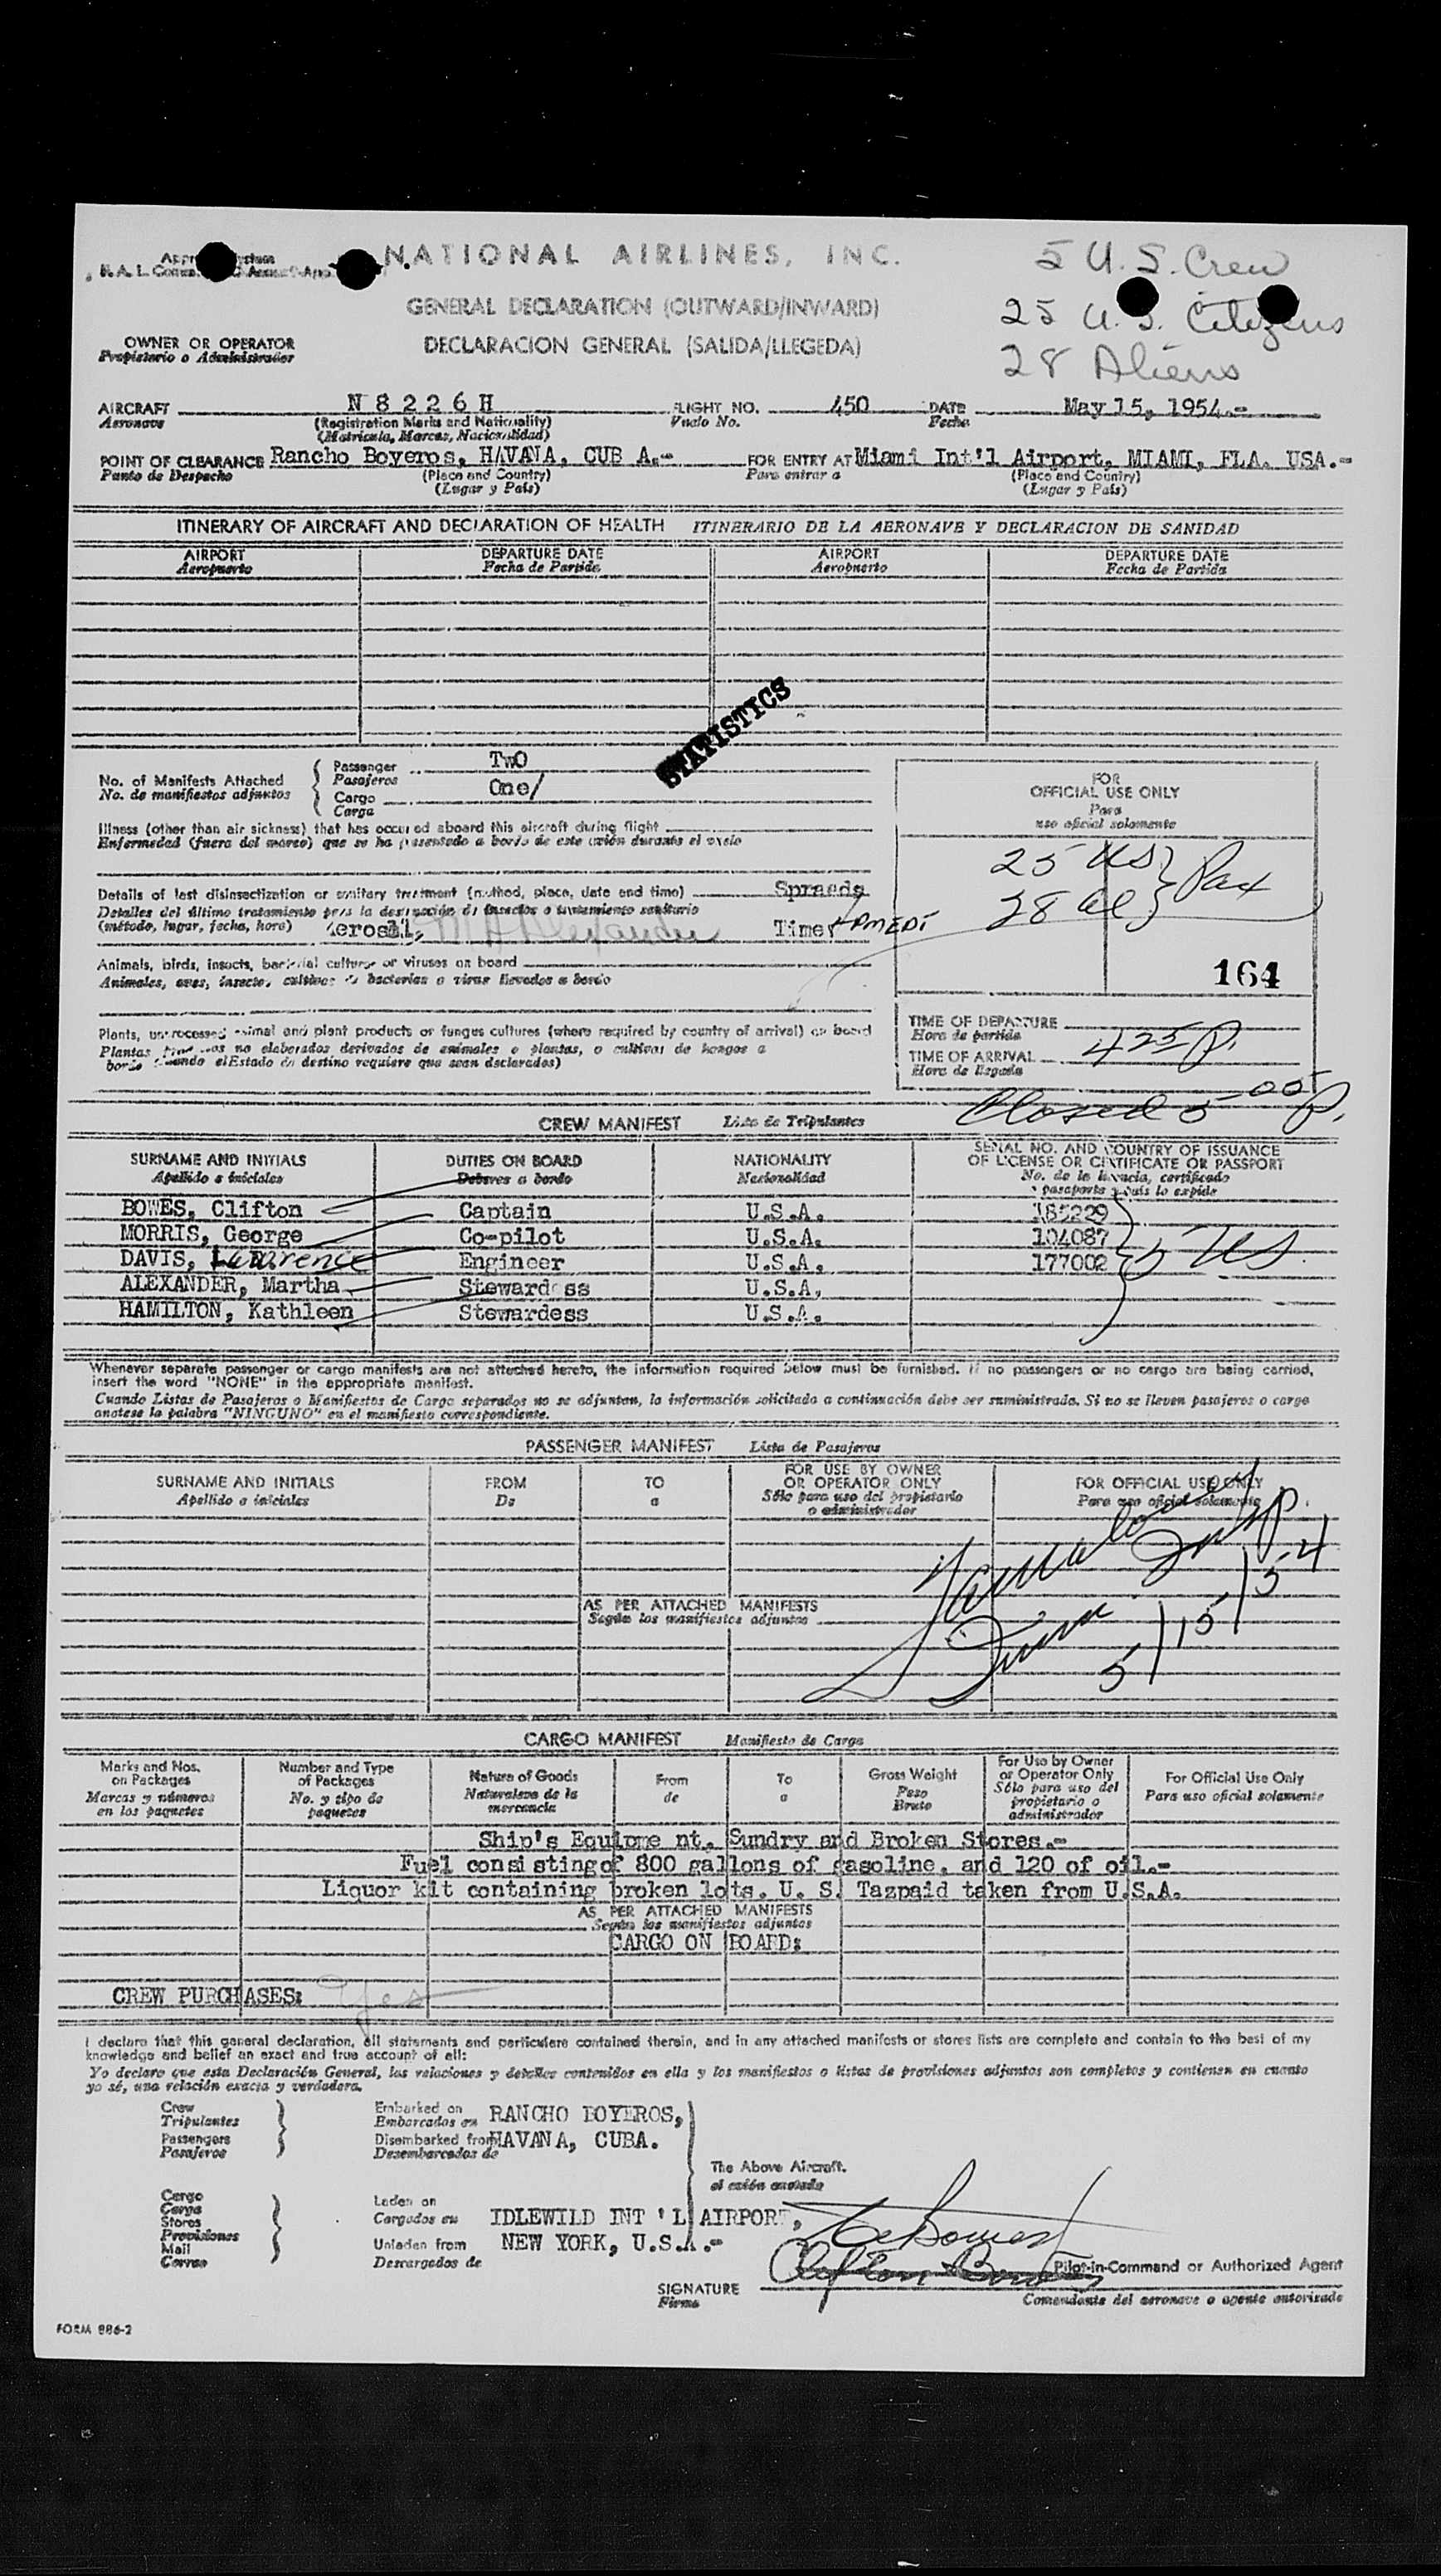 NATIONAL AIRLINES, INC.
5 U. S. Crew
GENERAL DECLARATION (OUTWARD/INWARD)
25 U. S. Citizens
OWNER OR OPERATOR
Propietario o Administrador
DECLARACION GENERAL (SALIDA/LLEGEDA)
28 Aliens
AIRCRAFT N 8 2 2 6 H FLIGHT NO. 450 DATE May 15, 1954.-
Aeronave (Registration Marks and Nationality) Vuelo No. Fecha
(Matricula, Marcas, Nacionalidad)
POINT OF CLEARANCE Rancho Boyeros, HAVANA, CUB A.- FOR ENTRY AT Miami Int'l Airport, MIAMI, FLA. USA.-
Punto de Despacho (Place and Country) Para entrar a (Place and Country)
(Lugar y País) (Lugar y País)
ITINERARY OF AIRCRAFT AND DECLARATION OF HEALTH ITINERARIO DE LA AERONAVE Y DECLARACION DE SANIDAD
AIRPORT DEPARTURE DATE AIRPORT DEPARTURE DATE
Aeropuerto Fecha de Partida Aeropuerto Fecha de Partida
STATISTICS
No. of Manifests Attached Passenger TwO
No. de manifiestos adjuntos Pasajeros
Cargo One/
Carga
FOR
OFFICIAL USE ONLY
Para
uso oficial solamente
Illness (other than air sickness) that has occured aboard this aircraft during flight
Enfermedad (fuera del mareo) que se ha presentado a bordo de este avión durante el vuelo
25 US
28 al
Pax
Details of last disinsectization or sanitary treatment (method, place, date and time) Spraeds
Detalles del último tratamiento para la destrucción de insectos o tratamiento sanitario
(método, lugar, fecha, hora) Aerosil, M A Alexander Time
Animals, birds, insects, bacterial cultures or viruses on board
Animales, aves, insecto, cultivos de bacterias o virus llevados a bordo
164
Plants, unprocessed animal and plant products or fungus cultures (where required by country of arrival) on board
Plantas no elaborados derivados de animales o plantas, o cultivos de hongos a
bordo cuando el Estado de destino requiere que sean declarados)
TIME OF DEPARTURE
Hora de partida
TIME OF ARRIVAL 425 P.
Hora de llegada
Closed 5 00 P.
CREW MANIFEST Lista de Tripulantes
SURNAME AND INITIALS DUTIES ON BOARD NATIONALITY SERIAL NO. AND COUNTRY OF ISSUANCE
OF LICENSE OR CERTIFICATE OR PASSPORT
Apellido e iniciales Deberes a bordo Nacionalidad No. de la licencia, certificado
o pasaporte y país lo expide
BOWES, Clifton Captain U.S.A. 185229
MORRIS, George Co-pilot U.S.A. 104087
DAVIS, Lawrence Engineer U.S.A. 177002
5 US
ALEXANDER, Martha Stewardess U.S.A.
HAMILTON, Kathleen Stewardess U.S.A.
Whenever separate passenger or cargo manifests are not attached hereto, the information required below must be furnished. If no passengers or no cargo are being carried,
insert the word "NONE" in the appropriate manifest.
Cuando Listas de Pasajeros o Manifiestos de Cargo separados no se adjuntan, la información solicitada a continuación debe ser suministrada. Si no se lleven pasajeros o cargo
anotese la palabra "NINGUNO" en el manifiesto correspondiente.
PASSENGER MANIFEST Lista de Pasajeros
SURNAME AND INITIALS FROM TO FOR USE BY OWNER
OR OPERATOR ONLY FOR OFFICIAL USE ONLY
Apellido e iniciales De a Sólo para uso del propietario
o administrador Para uso oficial solamente
AS PER ATTACHED MANIFESTS
Según los manifiestos adjuntos
5/15/54
CARGO MANIFEST Manifiesto de Carga
Marks and Nos. on Packages
Marcas y números en los paquetes
Number and Type of Packages
No. y tipo de paquetes
Nature of Goods
Naturaleza de la mercancia
From
de
To
a
Gross Weight
Peso Bruto
For Use by Owner or Operator Only
Sólo para uso del propietario o administrador
For Official Use Only
Para uso oficial solamente
Ship's Equipme nt, Sundry and Broken Stores.-
Fuel consisting of 800 gallons of gasoline, and 120 of oil.-
Liquor kit containing broken lots. U. S. Tazpaid taken from U.S.A.
AS PER ATTACHED MANIFESTS
Según los manifiestos adjuntos
CARGO ON BOARD:
CREW PURCHASES: Yes
I declare that this general declaration, all statements and particulars contained therein, and in any attached manifests or stores lists are complete and contain to the best of my
knowledge and belief an exact and true account of all:
Yo declaro que esta Declaración General, las relaciones y detalles contenidos en ella y los manifiestos o listas de provisiones adjuntos son completos y contienen en cuanto
yo sé, una relación exacta y verdadera.
Crew Embarked on RANCHO BOYEROS,
Tripulantes Embarcados en
Passengers Disembarked from HAVANA, CUBA.
Pasajeros Desembarcados de
The Above Aircraft.
el avión anotado
Cargo
Carga
Stores
Provisiones
Mail
Correo
Laden on IDLEWILD INT 'L AIRPORT,
Cargados en
Unladen from NEW YORK, U.S.A.-
Descargados de
Clifton Bowes
Pilot-in-Command or Authorized Agent
SIGNATURE
Firma
Comandante del aeronave o agente autorizado
FORM 886-2